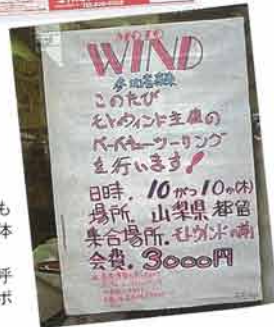 MOTO
WIND
このたび
モトウィンド主催の
バーベキューツーリング
を行います!
日時. 10がつ10か(木)
場所. 山梨県都留
集合場所. モトウィンドの前
会費. 3000円
も
体
呼
ボ